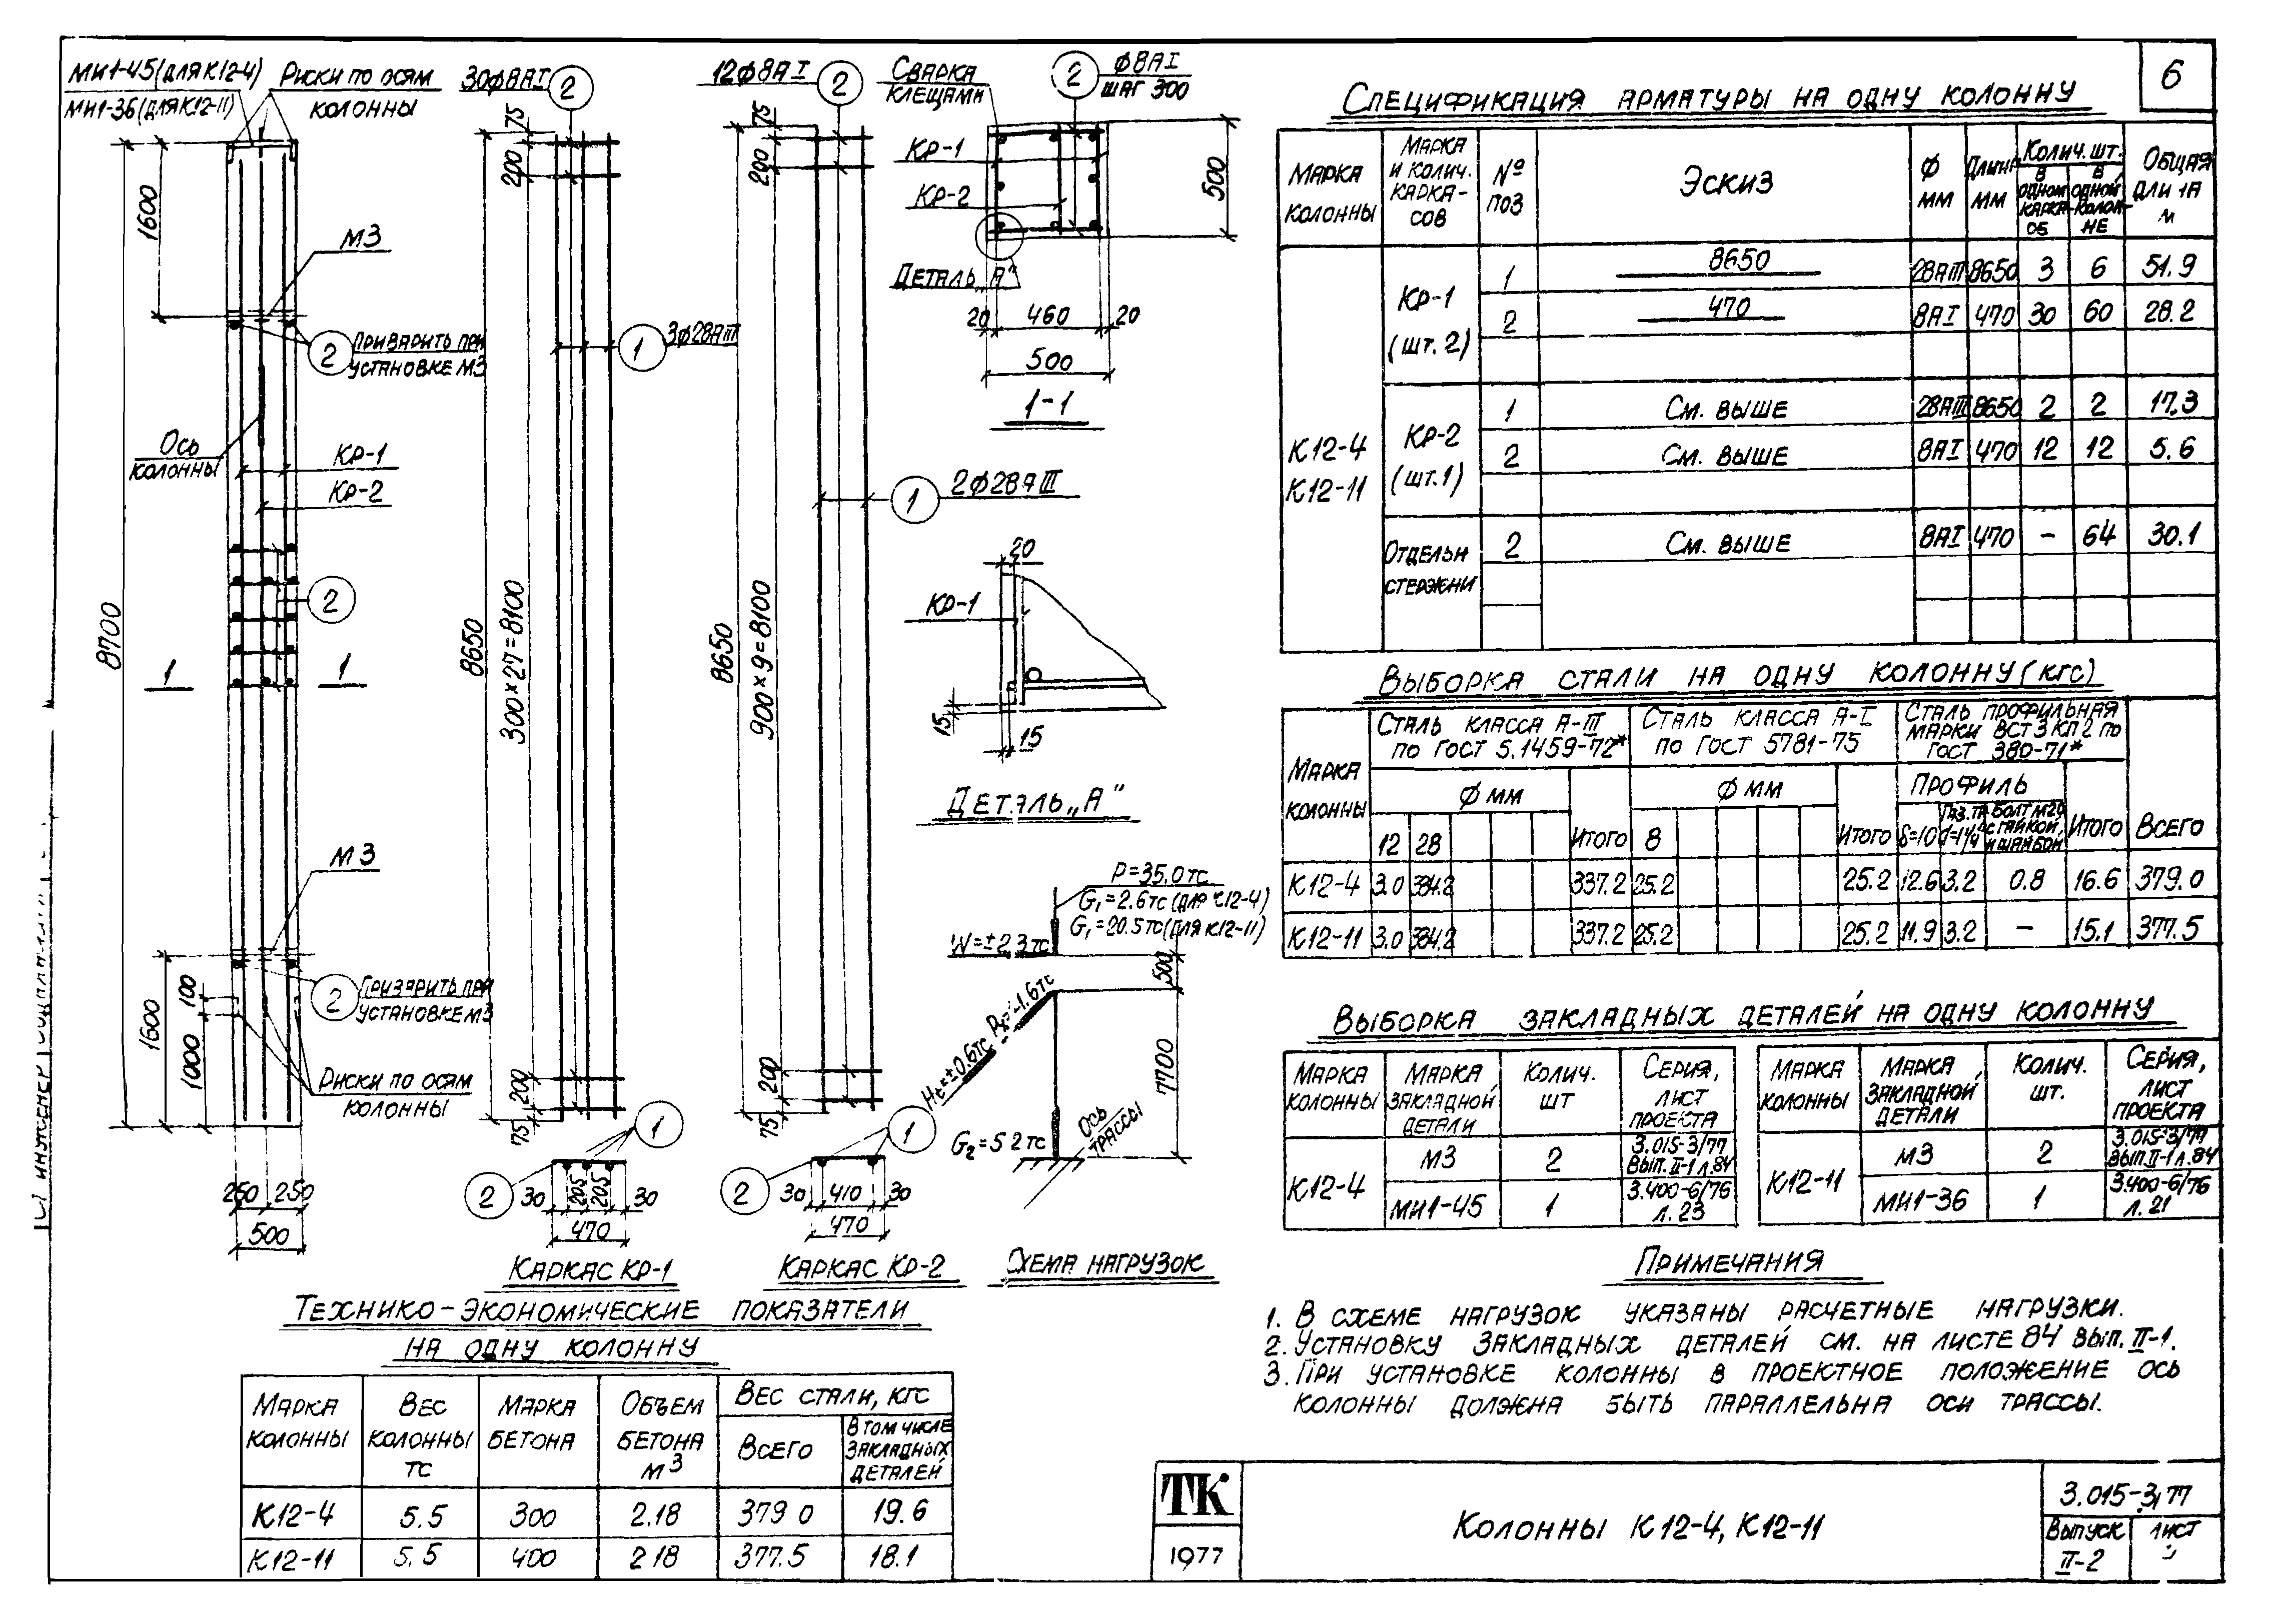 6
МИ1-45 (ДЛЯ К12-4)
МИ1-36 (ДЛЯ К12-11)
РИСКИ ПО ОСЯМ
КОЛОННЫ
1600
М3
2
ПРИВАРИТЬ ПРИ
УСТАНОВКЕ М3
ОСЬ
КОЛОННЫ
КР-1
КР-2
8700
2
1
1
М3
2
ПРИВАРИТЬ ПРИ
УСТАНОВКЕ М3
1600
100
1000
РИСКИ ПО ОСЯМ
КОЛОННЫ
250
250
500
30ϕ8АI
2
75
200
1
3ϕ28АIII
8650
300×27=8100
200
75
1
2
30
205
205
30
470
КАРКАС КР-1
12ϕ8АI
2
75
200
1
2ϕ28АIII
8650
900×9=8100
200
75
1
2
30
410
30
470
КАРКАС КР-2
СВАРКА
КЛЕЩАМИ
2
ϕ8АI
ШАГ 300
КР-1
КР-2
ДЕТАЛЬ „А"
500
20
460
20
500
1-1
20
КР-1
15
15
ДЕТАЛЬ „А"
P=35.0тс
G₁=2.6тс (ДЛЯ К12-4)
G₁=20.5тс (ДЛЯ К12-11)
W=±2.3тс
500
Hс=±0.6тс
=-1.6тс
7700
G₂=5 2 тс
ОСЬ
ТРАССЫ
СХЕМА НАГРУЗОК
СПЕЦИФИКАЦИЯ АРМАТУРЫ НА ОДНУ КОЛОННУ
МАРКА КОЛОННЫ
МАРКА И КОЛИЧ. КАРКА-СОВ
№ ПОЗ
ЭСКИЗ
Ф ММ
ДЛИНА ММ
КОЛИЧ. ШТ.
В ОДНОМ КАРКАСЕ
В ОДНОЙ КОЛОН-НЕ
ОБЩАЯ ДЛИНА М
К12-4
К12-11
КР-1
(ШТ. 2)
1 8650 28АIII 8650 3 6 51.9
2 470 8АI 470 30 60 28.2
КР-2
(ШТ.1)
1 СМ. ВЫШЕ 28АIII 8650 2 2 17.3
2 СМ. ВЫШЕ 8АI 470 12 12 5.6
ОТДЕЛЬН
СТЕРЖНИ
2 СМ. ВЫШЕ 8АI 470 - 64 30.1
ВЫБОРКА СТАЛИ НА ОДНУ КОЛОННУ (КГС)
МАРКА КОЛОННЫ
СТАЛЬ КЛАССА А-III
ПО ГОСТ 5.1459-72*
СТАЛЬ КЛАССА А-I
ПО ГОСТ 5781-75
СТАЛЬ ПРОФИЛЬНАЯ
МАРКИ ВСТ 3 КП 2 ПО
ГОСТ 380-71*
Ф ММ
Ф ММ
ПРОФИЛЬ
12 28 ИТОГО 8 ИТОГО δ=10 ГАЗ. ТР. d=1¼" БОЛТ М20 С ГАЙКОЙ И ШАЙБОЙ ИТОГО ВСЕГО
К12-4 3.0 334.2 337.2 25.2 25.2 12.6 3.2 0.8 16.6 379.0
К12-11 3.0 334.2 337.2 25.2 25.2 11.9 3.2 - 15.1 377.5
ВЫБОРКА ЗАКЛАДНЫХ ДЕТАЛЕЙ НА ОДНУ КОЛОННУ
МАРКА КОЛОННЫ
МАРКА ЗАКЛАДНОЙ ДЕТАЛИ
КОЛИЧ. ШТ
СЕРИЯ, ЛИСТ ПРОЕКТА
К12-4
М3 2 3.015-3/77 ВЫП. II-1 Л.84
МИ1-45 1 3.400-6/76 Л. 23
МАРКА КОЛОННЫ
МАРКА ЗАКЛАДНОЙ ДЕТАЛИ
КОЛИЧ. ШТ.
СЕРИЯ, ЛИСТ ПРОЕКТА
К12-11
М3 2 3.015-3/77 ВЫП.II-1 Л.84
МИ1-36 1 3.400-6/76 Л. 21
ПРИМЕЧАНИЯ
1. В СХЕМЕ НАГРУЗОК УКАЗАНЫ РАСЧЕТНЫЕ НАГРУЗКИ.
2. УСТАНОВКУ ЗАКЛАДНЫХ ДЕТАЛЕЙ СМ. НА ЛИСТЕ 84 ВЫП. II-1.
3. ПРИ УСТАНОВКЕ КОЛОННЫ В ПРОЕКТНОЕ ПОЛОЖЕНИЕ ОСЬ
КОЛОННЫ ДОЛЖНА БЫТЬ ПАРАЛЛЕЛЬНА ОСИ ТРАССЫ.
ТЕХНИКО-ЭКОНОМИЧЕСКИЕ ПОКАЗАТЕЛИ
НА ОДНУ КОЛОННУ
МАРКА КОЛОННЫ
ВЕС КОЛОННЫ ТС
МАРКА БЕТОНА
ОБЪЕМ БЕТОНА М3
ВЕС СТАЛИ, КГС
ВСЕГО
В ТОМ ЧИСЛЕ ЗАКЛАДНЫХ ДЕТАЛЕЙ
К12-4 5.5 300 2.18 379 0 19.6
К12-11 5.5 400 2 18 377.5 18.1
ТК
1977
КОЛОННЫ К12-4, К12-11
3.015-3/77
ВЫПУСК
II-2
ЛИСТ